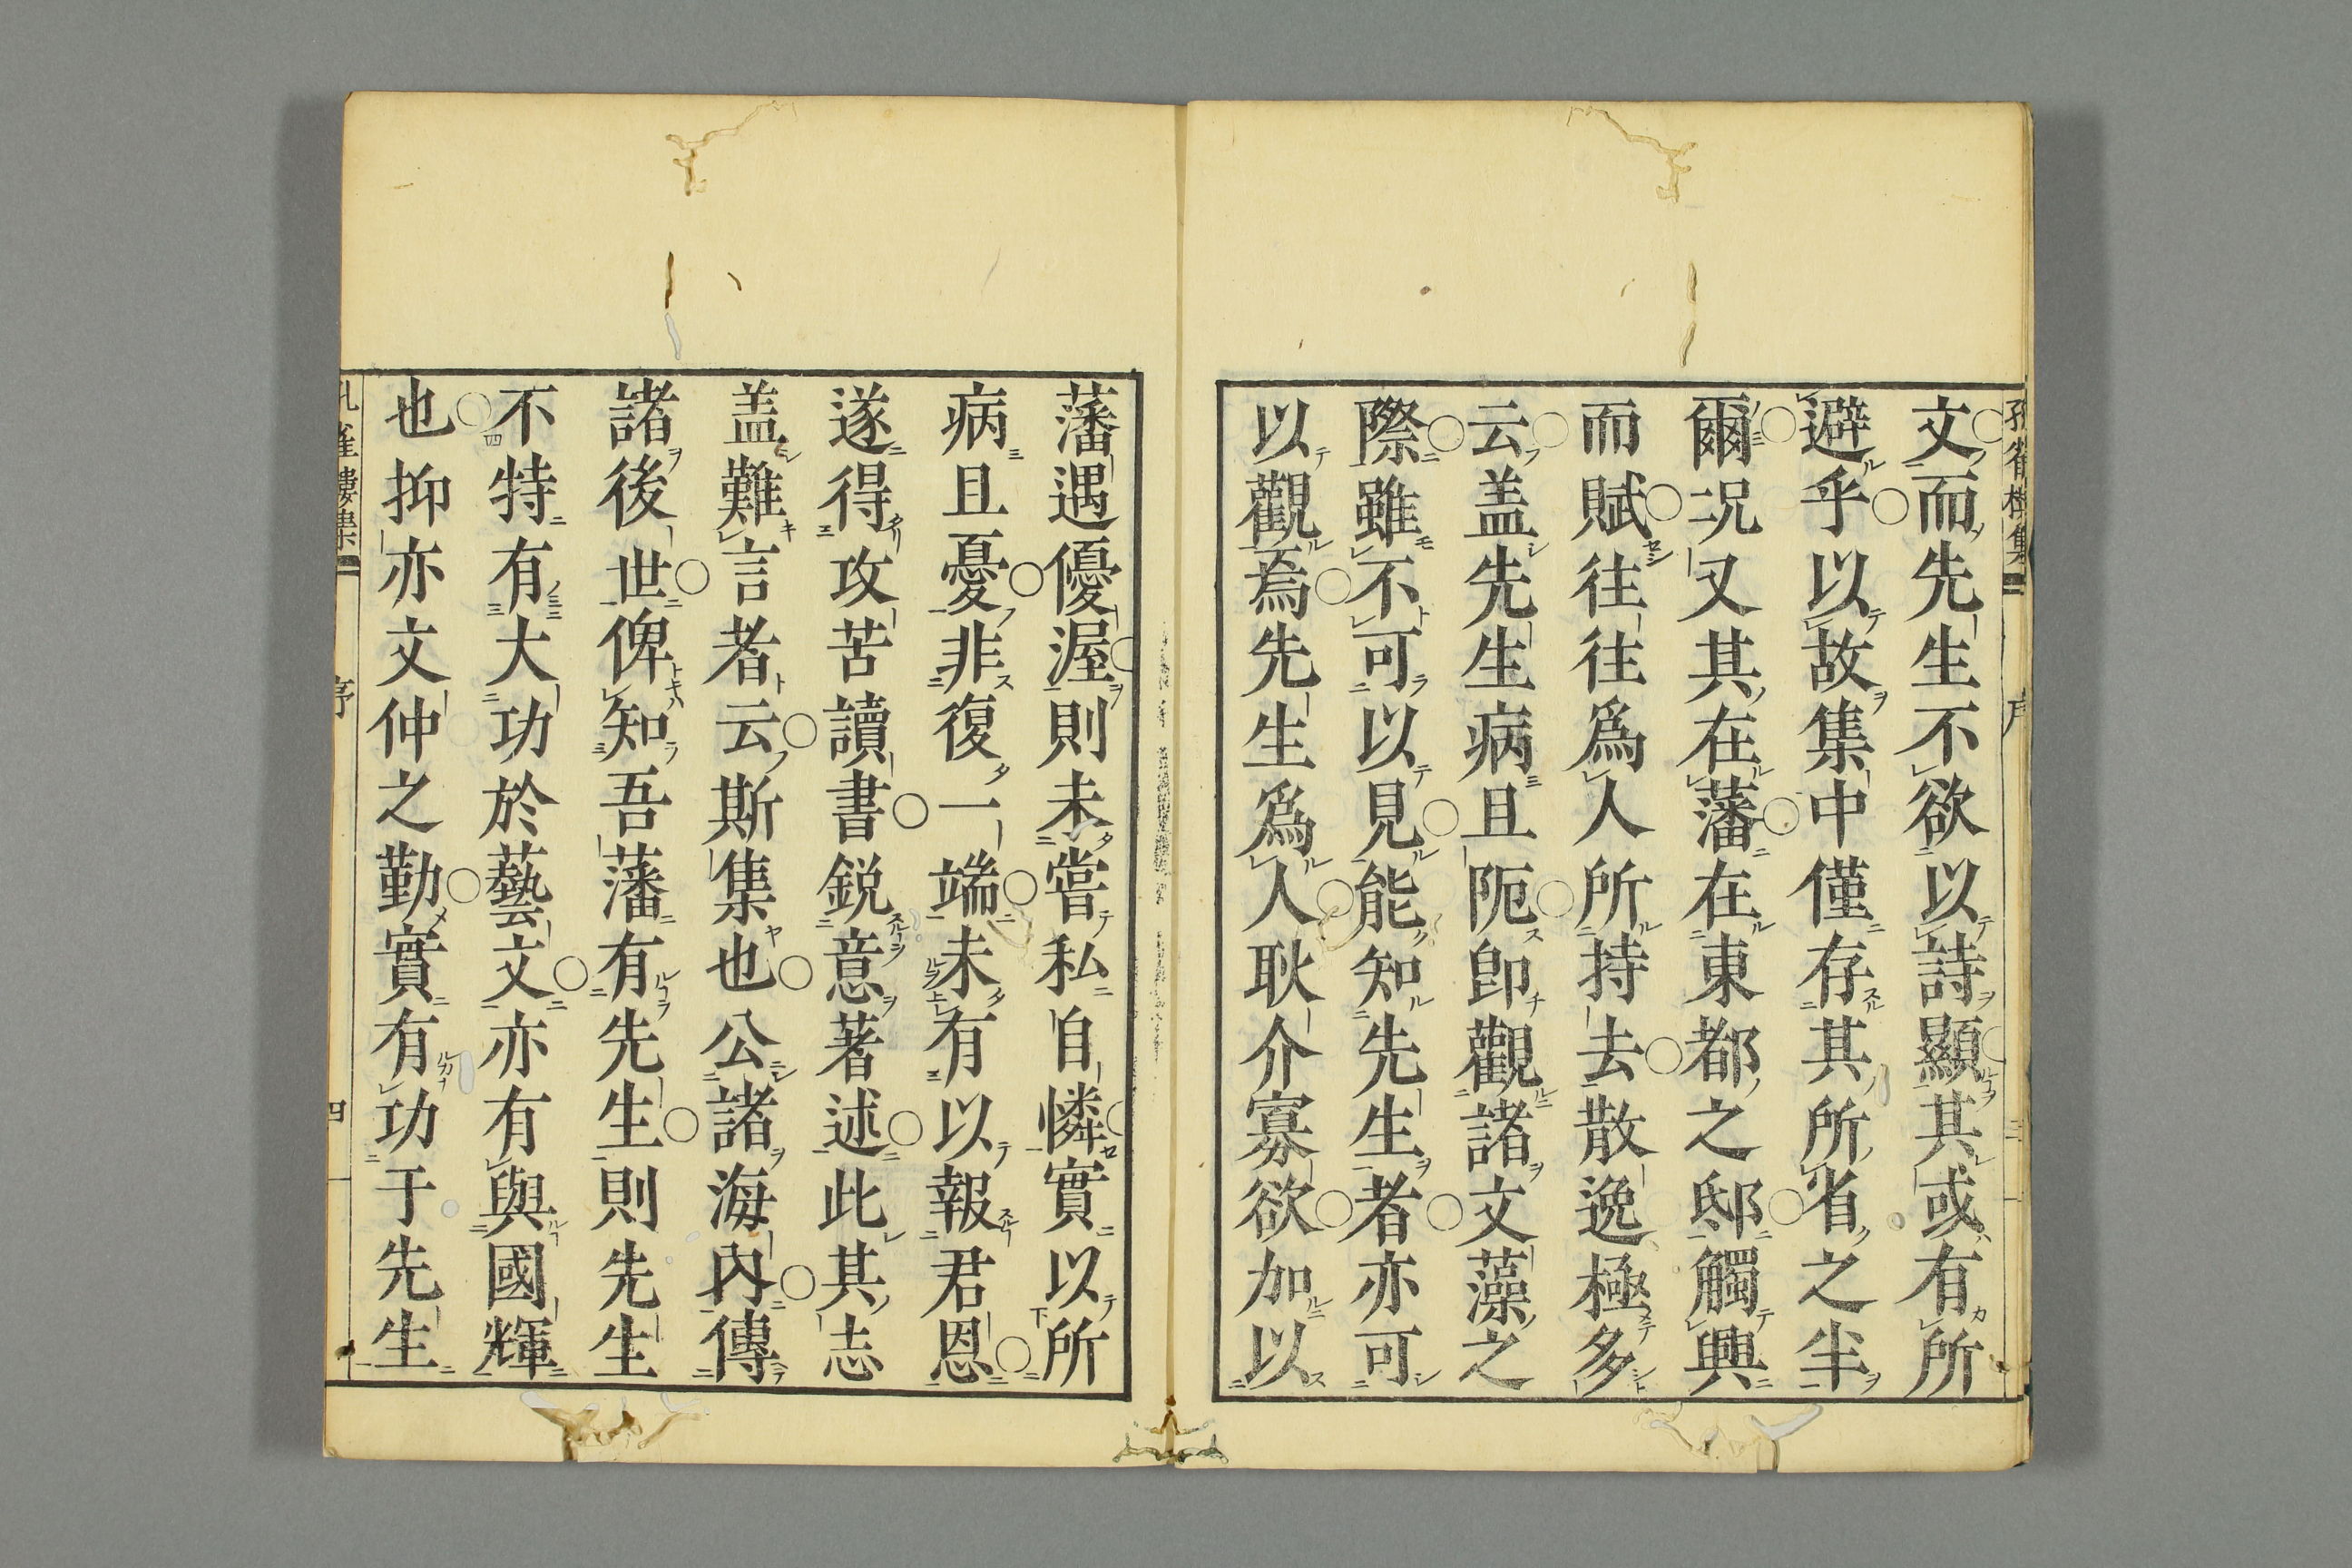 文而先生不欲以詩顯其或有所
避乎以故集中僅存其所省之半
爾况又其在藩在東都之邸觸興
而賦往往爲人所持去散逸極多
云盖先生病且阨卽觀諸文藻之
際雖不可以見能知先生者亦可
以觀焉先生爲人耿介寡欲加以
藩遇優渥則未嘗私自憐實以所
病且憂非復一端未有以報君恩
遂得攻苦讀書鋭意著述此其志
盖難言者云斯集也公諸海內傳
諸後世俾知吾藩有先生則先生
不特有大功於藝文亦有與國輝
也抑亦文仲之勤實有功于先生
孔雀樓集
序
四